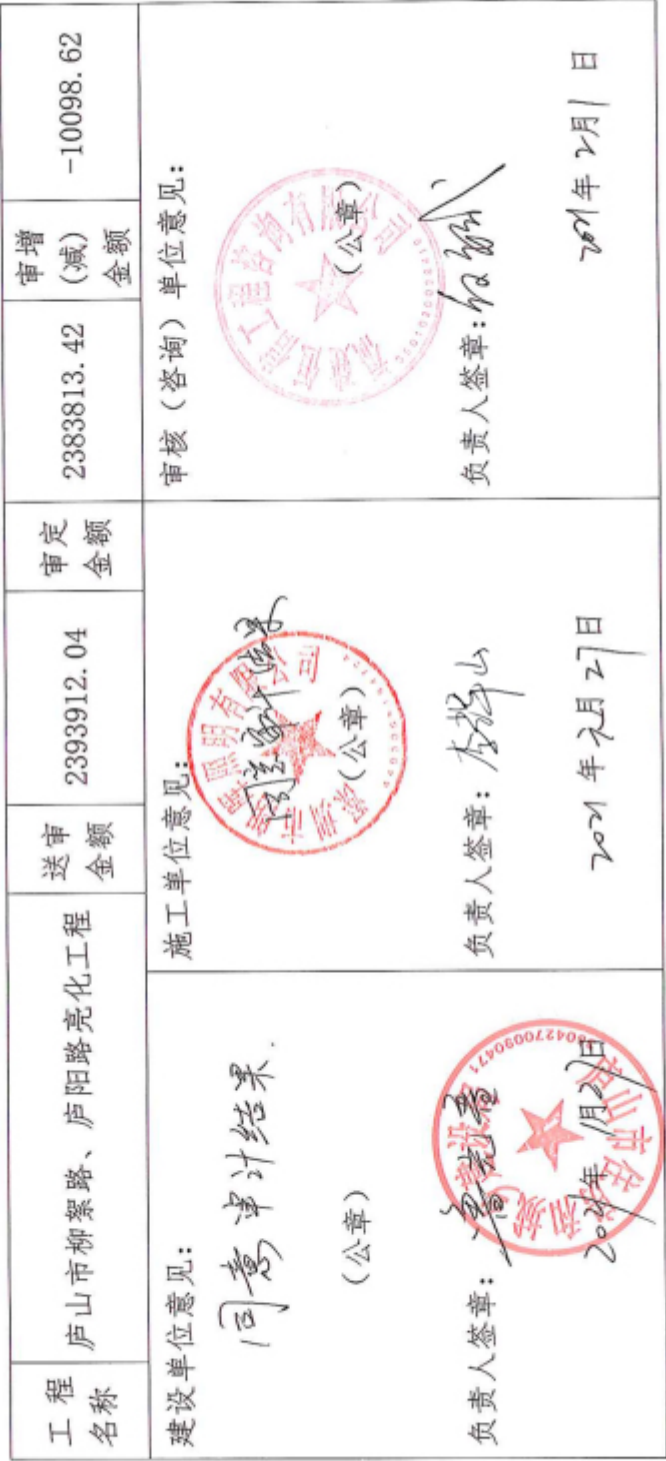 工程名称
庐山市柳絮路、庐阳路亮化工程
送审金额
2393912.04
审定金额
2383813.42
审增(减)金额
-10098.62
建设单位意见:
同意审计结果.
(公章)
负责人签章:
2021年1月27日
施工单位意见:
同意审计结果
(公章)
负责人签章:
2021年元月27日
审核(咨询)单位意见:
(公章)
负责人签章:
2021年2月1日